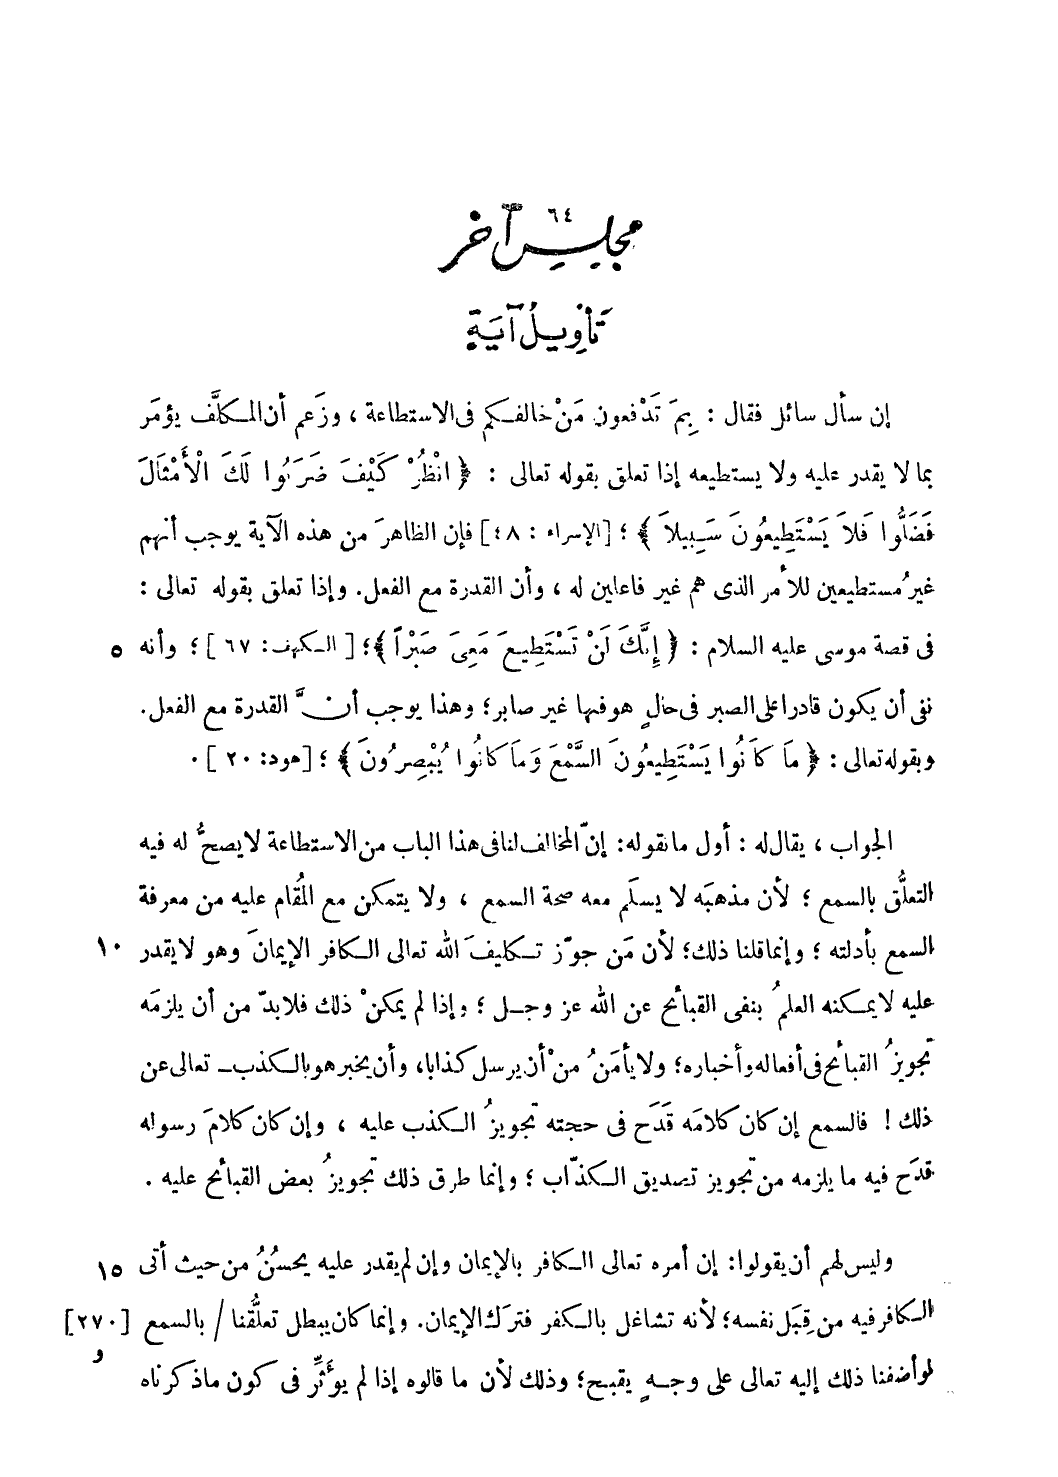 ٦٤
مجلس آخر
تَأْوِيلُ آيَةٍ
إن سأل سائل فقال : بِمَ تَدْفعون مَنْ خالفكم فى الاستطاعة ، وزَعم أن المكلَّف يؤمَر
بما لا يقدر عليه ولا يستطيعه إذا تعلق بقوله تعالى : ﴿ انْظُرْ كَيْفَ ضَرَبُوا لَكَ الْأَمْثَالَ
فَضَلُّوا فَلاَ يَسْتَطِيعُونَ سَبِيلاً ﴾ ؛ [الإسراء : ٤٨] فإن الظاهرَ من هذه الآية يوجب أنهم
غيرُ مستطيعين للأمر الذى هم غير فاعلين له ، وأن القدرة مع الفعل. وإذا تعلق بقوله تعالى :
فى قصة موسى عليه السلام : ﴿ إِنَّكَ لَنْ تَسْتَطِيعَ مَعِىَ صَبْراً ﴾؛ [ الكهف: ٦٧ ] ؛ وأنه ٥
نفى أن يكون قادرا على الصبر فى حالٍ هو فيها غير صابر؛ وهذا يوجب أنَّ القدرة مع الفعل.
وبقوله تعالى : ﴿ مَا كَانُوا يَسْتَطِيعُونَ السَّمْعَ وَمَا كَانُوا يُبْصِرُونَ ﴾ ؛ [هود: ٢٠ ] .
الجواب ، يقال له : أول ما نقوله: إنّ المخالف لنا فى هذا الباب من الاستطاعة لا يصحُّ له فيه
التعلُّق بالسمع ؛ لأن مذهبَه لا يسلَم معه صحة السمع ، ولا يتمكن مع المُقام عليه من معرفة
السمع بأدلته ؛ وإنما قلنا ذلك؛ لأن مَن جوّز تكليفَ الله تعالى الكافر الإيمانَ وهو لا يقدر ١٠
عليه لا يمكنه العلمُ بنفى القبائح عن الله عز وجل ؛ وإذا لم يمكنْ ذلك فلا بدّ من أن يلزمَه
تجويزُ القبائح فى أفعاله وأخباره؛ ولا يأمَنُ منْ أن يرسل كذابا، وأن يخبر هو بالكذب ـ تعالى عن
ذلك ! فالسمع إن كان كلامَه قَدَح فى حجته تجويزُ الكذب عليه ، وإن كان كلامَ رسوله
قدَح فيه ما يلزمه من تجويز تصديق الكذّاب ؛ وإنما طرق ذلك تجويزُ بعض القبائح عليه .
وليس لهم أن يقولوا: إن أمره تعالى الكافر بالإيمان وإن لم يقدر عليه يحسُنُ من حيث أتى ١٥
الكافر فيه من قِبَل نفسه؛ لأنه تشاغل بالكفر فترك الإيمان. وإنما كان يبطل تعلُّقنا / بالسمع [٢٧٠]
و
لو أضفنا ذلك إليه تعالى على وجهٍ يقبح؛ وذلك لأن ما قالوه إذا لم يؤثِّر فى كون ما ذكرناه